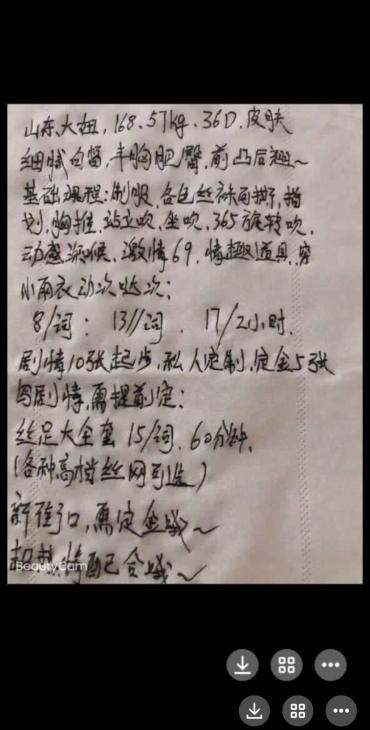 山东大妞，168.57kg.36D.皮肤
细腻白皙，丰胸肥臀，前凸后翘~
基础课程：制服，各色丝袜可撕，指
划，胸推，站立吹，坐吹，365旋转吹，
动感深喉，激情69，情趣道具，穿
小雨衣动次哒次：
8/词： 13//词． 17/2小时．
剧情10张起步，私人定制，定金5张
剧情，需提前定：
丝足大全套 15/词．60分钟，
（各种高档丝网可选）
需定金哦~
情配合哦~
BeautyCam